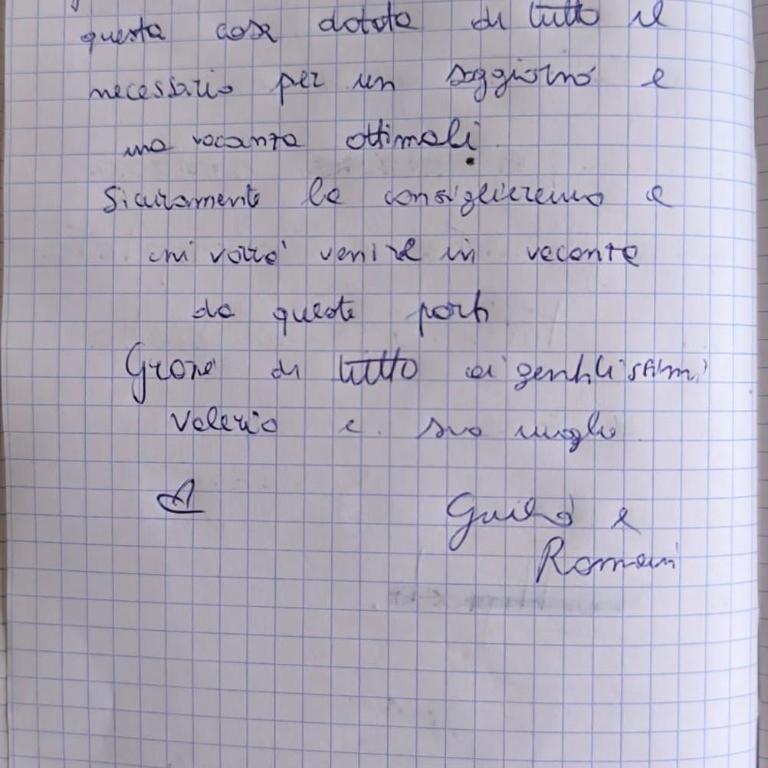 questa casa dotata di tutto il
necessario per un soggiorno e
una vacanza ottimali.
Sicuramente la consiglieremo a
chi vorrà venire in vacanza
da queste parti
Grazie di tutto ai gentilissimi
Valerio e sua moglie
e